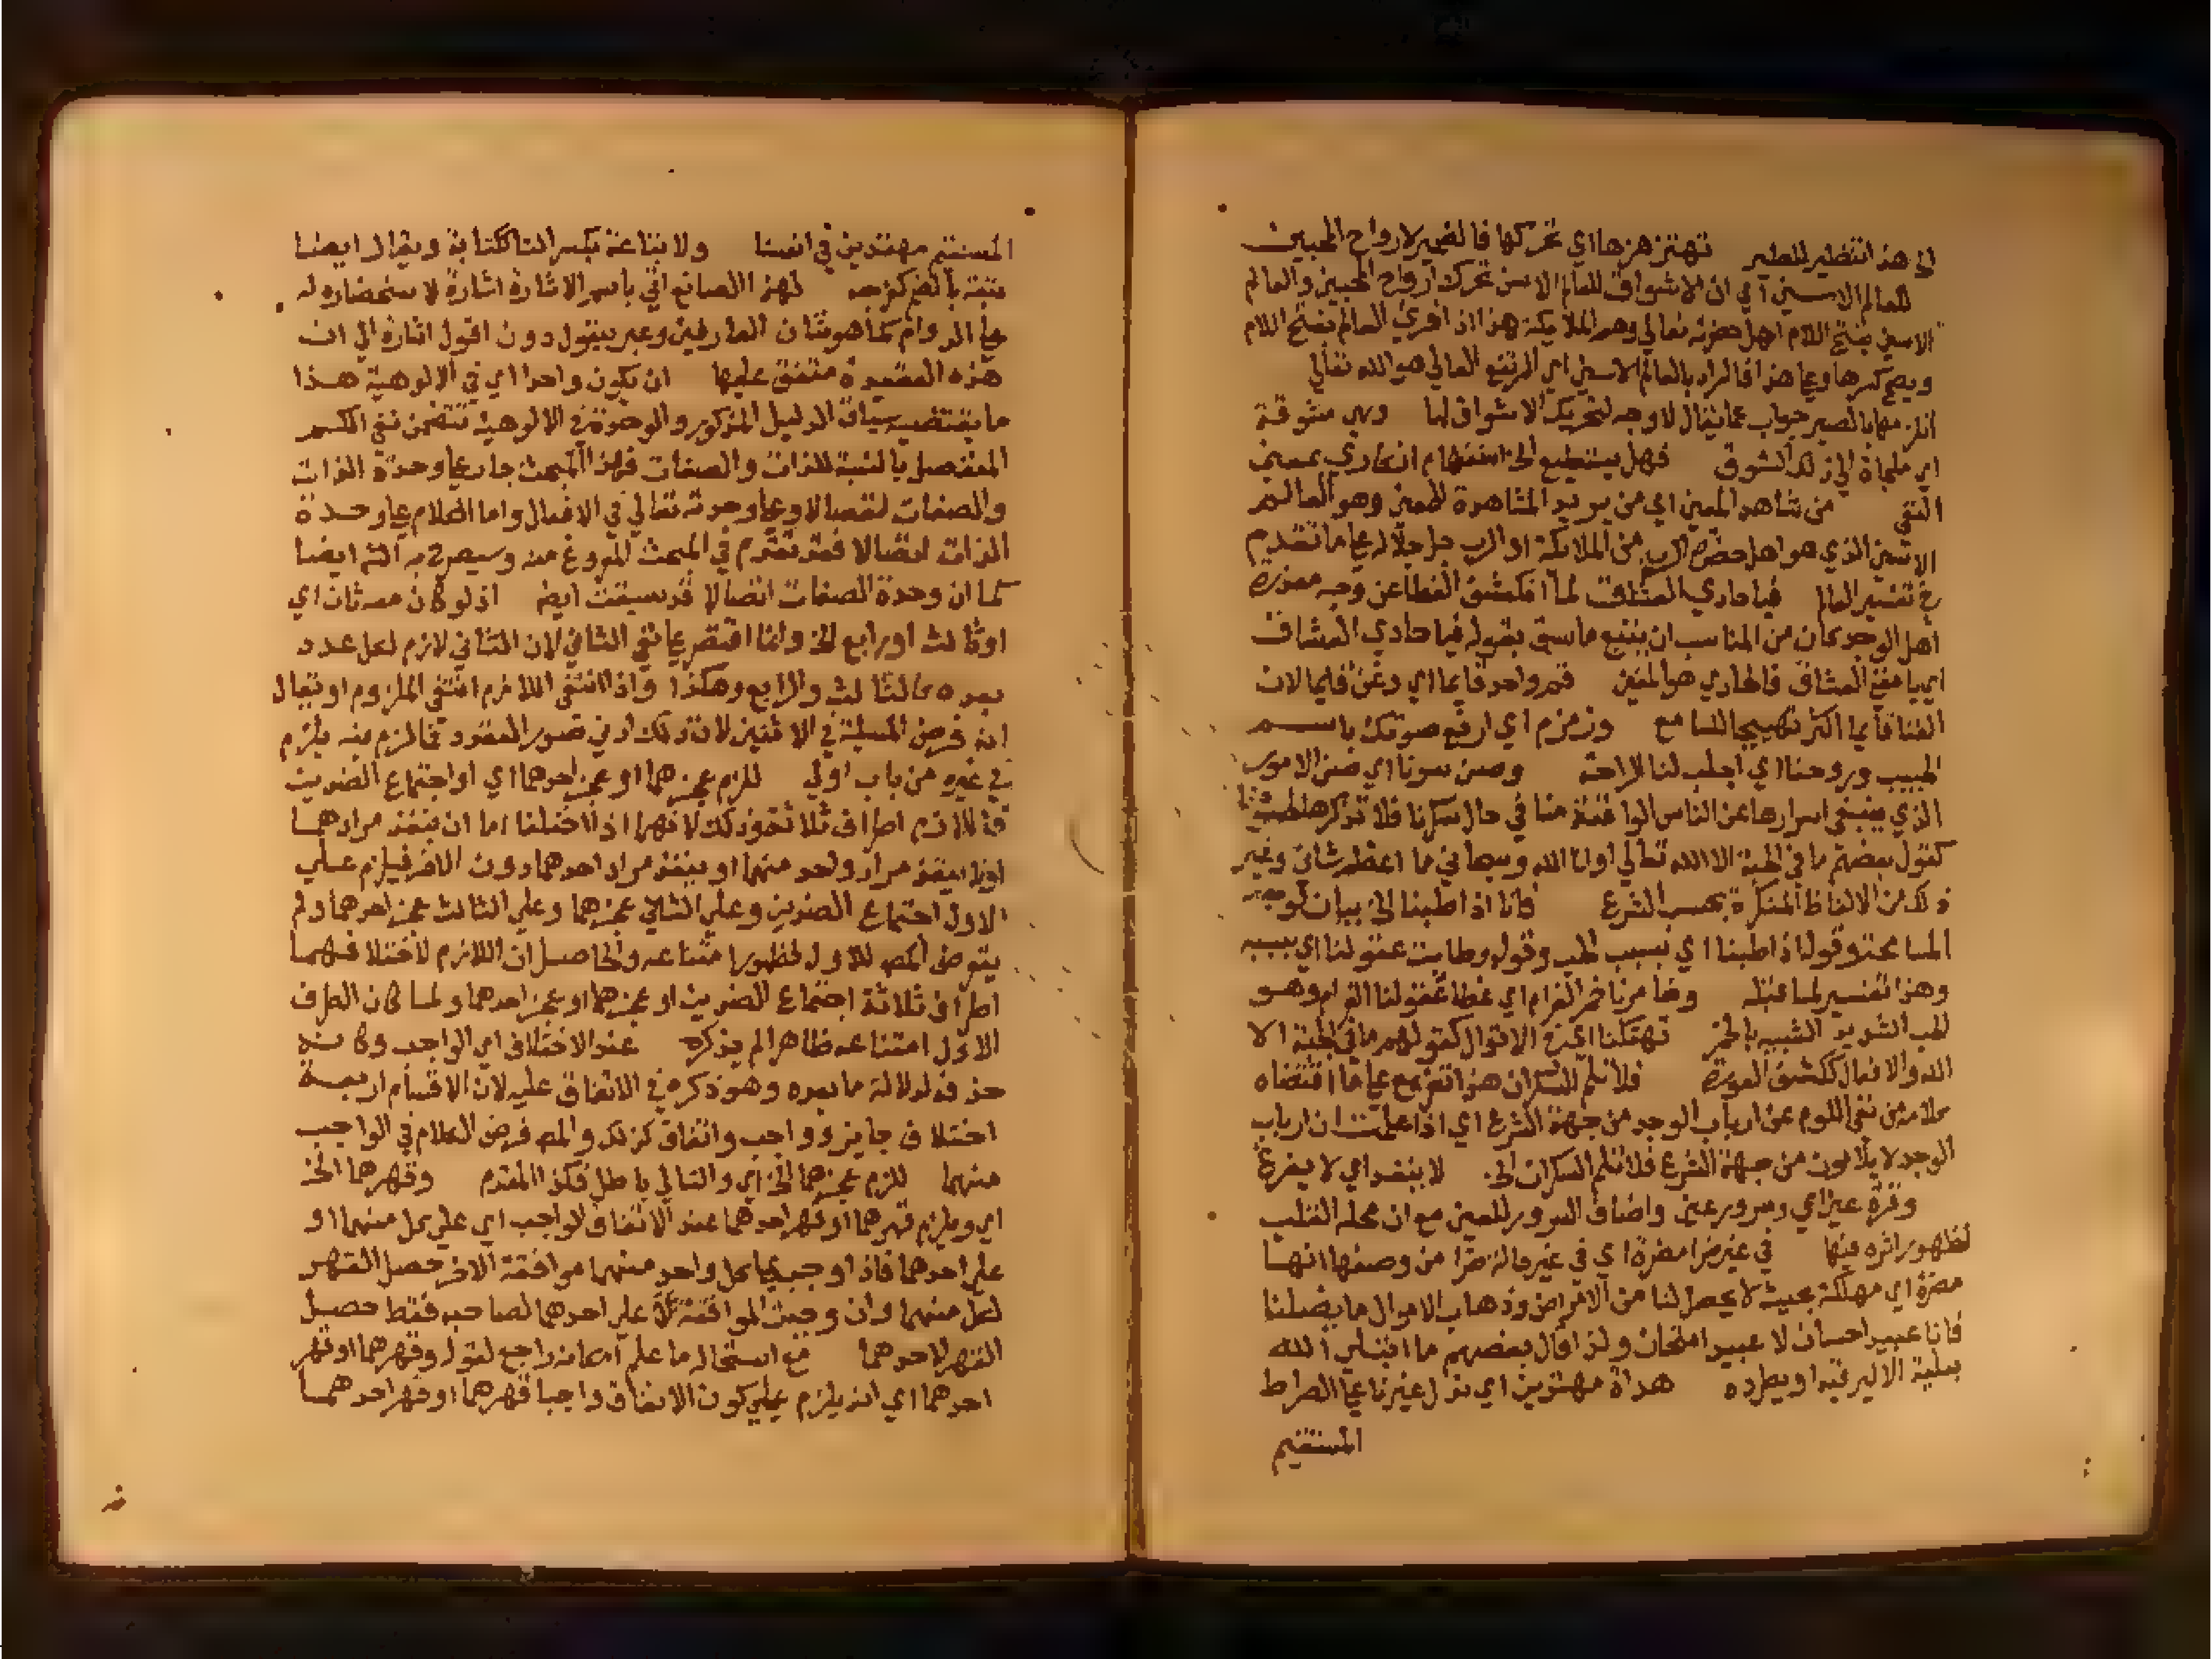 الخ هذا تنظير للطير تهتز هزها اي تحركها فالضمير لارواح المحبين
للعالم الاسنى اي ان الاشواق للعالم الاسن تحرك ارواح المحبين والعالم
الاسنى بفتح اللام اهل حضرته تعالي وهم الملايكة هذا اذ اقري العالم بفتح اللام
ويصح كسرها وعلي هذا فالمراد بالعالم الاسنى اي المرتفع العالي هو الله تعالي
بالصبر جواب عما يقال لا وجه لتحريك الاشواق لها وهي مشوقة
اي ملجاة الي ذلك الشوق فهل يستطيع الخ استفهام انكاري بمعني
النفي من شاهد المعني اي من يريد المشاهدة للمعني وهو العالم
الاسنى الذي هو اهل حضرة الرب من الملائكة او الرب جل جلاله علي ما تقدم
في تفسير العالم فيا حادي العشاق لما انكشف الغطا عن وجه معذرة
اهل الوجد كان من المناسب ان يتبع ما سبق بقوله فيا حادي العشاق
اي يا مغني العشاق فالحادي هو المغني قم واحد قايما اي وغن قايما لان
الغنا قايما اكثر تهييجا للسامع وزمزم اي ارفع صوتك باسم
الحبيب وروحنا اي اجلب لنا الراحة وصن سرنا اي صن الامور
الذي ينبغي اسرارها عن الناس الواقعة منا في حال سكرنا فلا تذكرها
كقول بعضهم ما في الجبة الا الله تعالي او انا الله وسبحاني ما اعظم شاني وغير
ذلك من الالفاظ المنكرة بحسب الشرع فانا اذا طبنا الخ بيان لوجه
المسامحة وقوله اذا طبنا اي بسبب الحب وقوله وطابت عقولنا اي بسببه
وهذا تفسير لما قبله وخامرنا خمر الغرام اي غطا عقولنا الغرام وهو
الحب الشديد الشبيه بالخمر تهتكنا اي في الاقوال كقولهم ما في الجبة الا
الله والافعال ككشف العورة فلا تلم السكران هذا تفريع علي ما اقتضاه
كلامه من نفي اللوم عن ارباب الوجد من جهة الشرع اي اذا علمت ان ارباب
الوجد لا يلامون من جهة الشرع فلا تلم السكران الخ لا ينفد اي لا يفرغ
وقرة عين اي وسرور عين واضاف السرور للعين مع ان محله القلب
لظهور اثره فيها في غير ضرا مضرة اي في غير حالة ضرا من وصفها انها
مضرة اي مهلكة بحيث لا يحصل لنا من الامراض وذهاب الاموال ما يضلنا
فانا عبيد احسان لا عبيد امتحان ولذا قال بعضهم ما ابتلي الله
ببلية الا ليرقيه او يطرده هداة مهتدين اي ندل غيرنا علي الصراط
المستقيم
المستقيم مهتدين في انفسنا ولا بتاعة بكسر التا ككتابة ويقال ايضا
بالضم كوزجه لهذا الصانع اتي باسم الاشارة اشارة لاستحضاره له
علي الدوام كما هو شان العارفين وعبر بيقول دون اقول اشارة الي ان
هذه العقيدة متفق عليها ان يكون واحدا اي في الالوهية هذا
ما يقتضيه سياق الدليل المذكور والوحدة في الالوهية تتضمن نفي الكم
المنفصل بالنسبة للذات والصفات فهذا المبحث جار علي وحدة الذات
والصفات انفصالا وعلي وحدته تعالي في الافعال واما الكلام علي وحدة
الذات اتصالا فقد تقدم في المبحث المفروغ منه وسيصرح به ايضا
كما ان وحدة الصفات اتصالا قد سبقت ايضا اذ لو كان معه ثان اي
او ثالث او رابع الخ وانما اقتصر علي نفي الثاني لان الثاني لازم لكل عدد
بعده كالثالث والرابع وهكذا واذا انتفي اللازم انتفي الملزوم او يقال
انه فرض المسيلة في الاثنين لان ذلك ادني صور التعدد فما لزم فيه يلزم
في غيره من باب اولي للزم عجزهما او عجز احدهما اي او اجتماع الضدين
فاللازم اطراف ثلاثة وذلك لانهما اذا اختلفا اما ان ينفذ مرادهما
او لا ينفذ مراد واحد منهما او ينفذ مراد احدهما دون الاخر فيلزم علي
الاول اجتماع الضدين وعلي الثاني عجزهما وعلي الثالث عجز احدهما ولم
يتعرض المص للاول لظهور امتناعه والحاصل ان اللازم لاختلافهما
اطراف ثلاثة اجتماع الضدين او عجزهما او عجز احدهما ولما كان الطرف
الاول امتناعه ظاهرا لم يذكره عند الاختلاف اي الواجب وكانه
حذفه لدلالة ما بعده وهو ذكره في الاتفاق عليه لان الاقسام اربعة
اختلاف جايز وواجب واتفاق كذلك والمص فرض الكلام في الواجب
منهما للزم عجزهما الخ اي والتالي باطل فكذا المقدم وقهرهما الخ
اي ويلزم قهرهما او قهر احدهما عند الاتفاق الواجب اي علي كل منهما او
علي احدهما فاذا وجب علي كل واحد منهما موافقة الاخر حصل القهر
لكل منهما وان وجبت الموافقة علي احدهما لصاحبه فقط حصل
القهر لاحدهما مع استحالة ما علم امكانه راجع لقوله وقهرهما او قهر
احدهما اي انه يلزم علي كون الاتفاق واجبا قهرهما او قهر احدهما